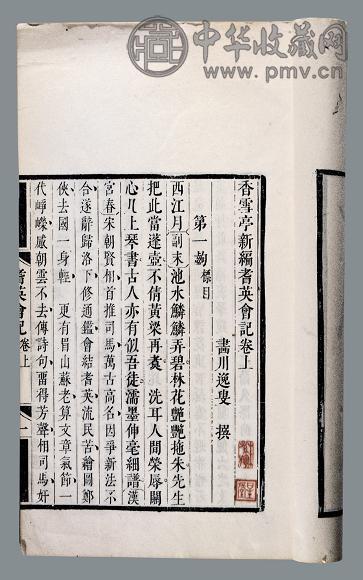 中华收藏网
www.pmv.cn
香雪亭新編耆英會記卷上
畵川逸叟 撰
第一齣 標目
西江月副末池水鱗鱗弄碧林花艷艷拖朱先生
把此當蓬壺不倩黃粱再煑 洗耳人間榮辱關
心几上琴書古人亦有似吾徒濡墨伸毫細譜漢
宮春宋朝賢相首推司馬萬古高名因爭新法不
合遂辭歸洛下修通鑑會結耆英流民苦繪圖鄭
俠去國一身輕 更有眉山蘇老算文章氣節一
代崢嶸感朝雲不去傳詩句畱得芳聲相司馬奸
耆英會記 卷上 一